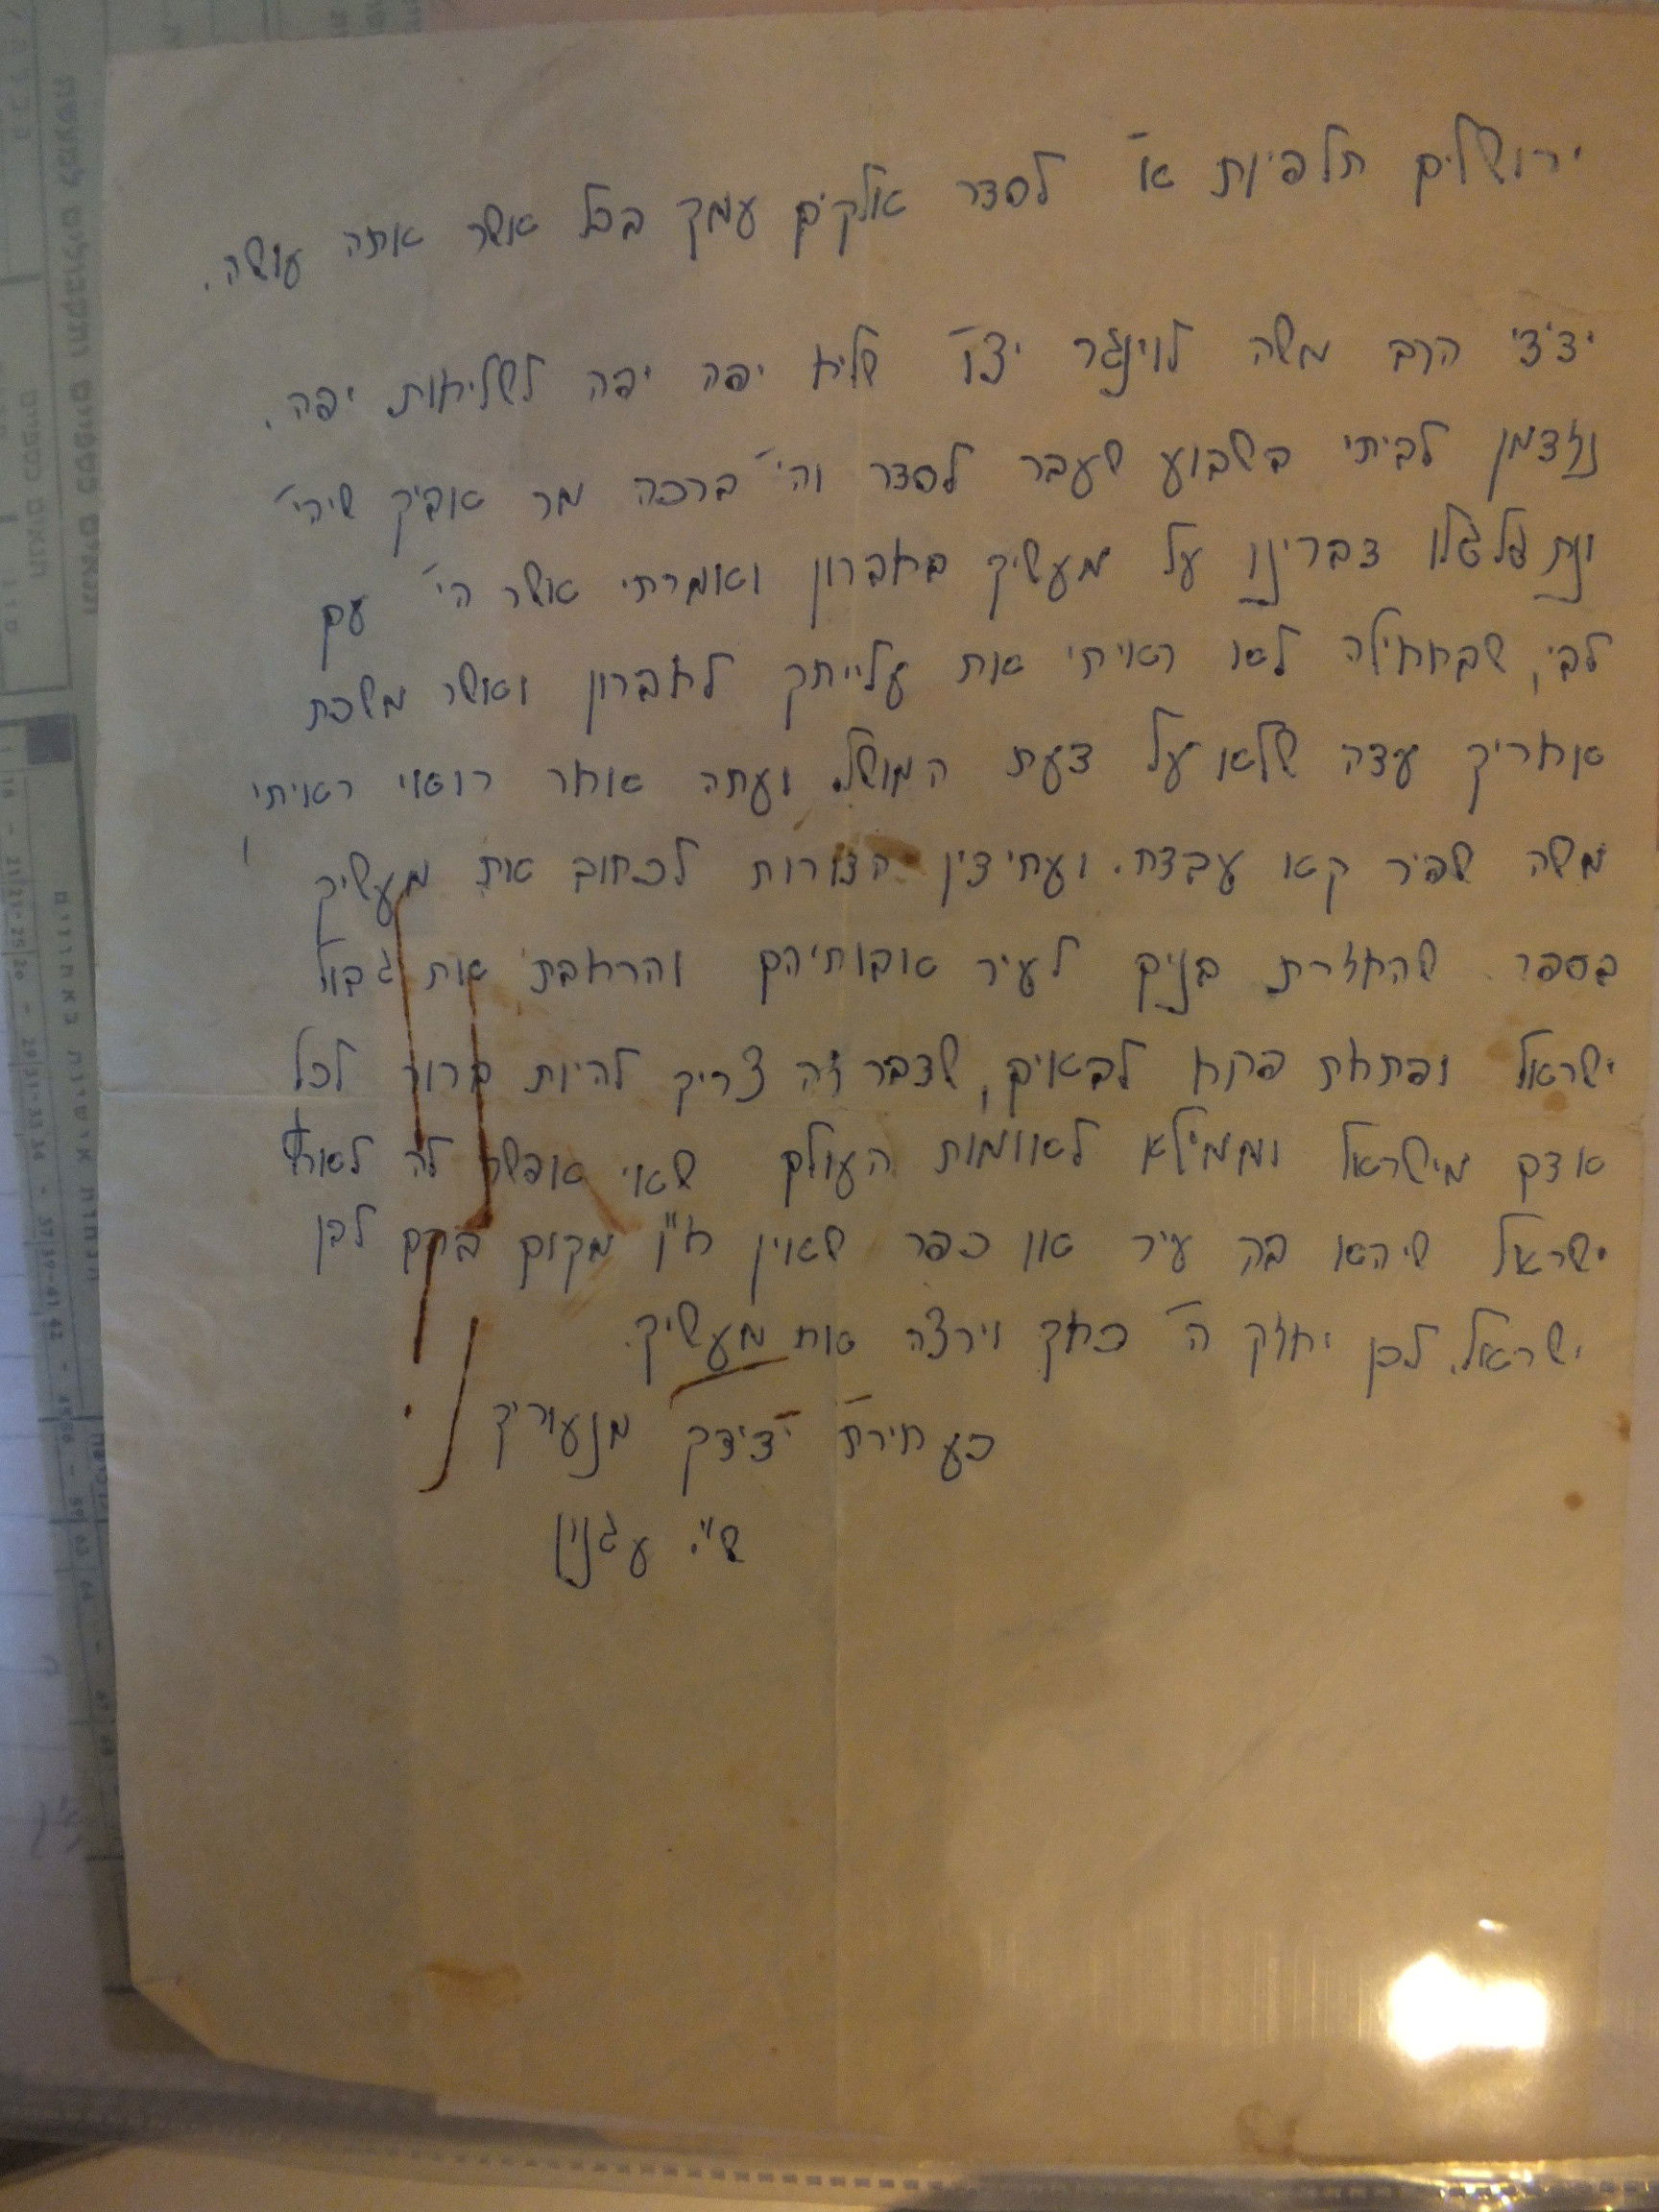 ירושלים תלפיות א' לסדר אלקים עמך בכל אשר אתה עושה.
ידידי הרב משה לוינגר יצו' שליח יפה יפה לשליחות יפה.
נזדמן לביתי בשבוע שעבר לסדר וה' ברכה מר אביך שיחי'
ונתגלגלו דברינו על מעשיך בחברון ואמרתי אשר הי' עם
לבי, שבתחילה לא ראיתי את עלייתך לחברון ואשר משכת
אחריך עדה שלא על דעת המושל. ועתה אחר רואי ראיתי
משה שפיר קא עבדת. ועתידין הדורות לכתוב את מעשיך
בספר שהחזרת בנים לעיר אבותיהם והרחבת את גבול
ישראל ופתחת פתח לבאים, שדבר זה צריך להיות ברור לכל
אדם מישראל וממילא לאומות העולם שאי אפשר לה לארץ
ישראל שיהא בה עיר או כפר שאין ח"ו מקום בהם לבן
ישראל. לכן יחזק ה' כחך וירצה את מעשיך.
כעתירת ידידך מנעוריך
ש"י עגנון